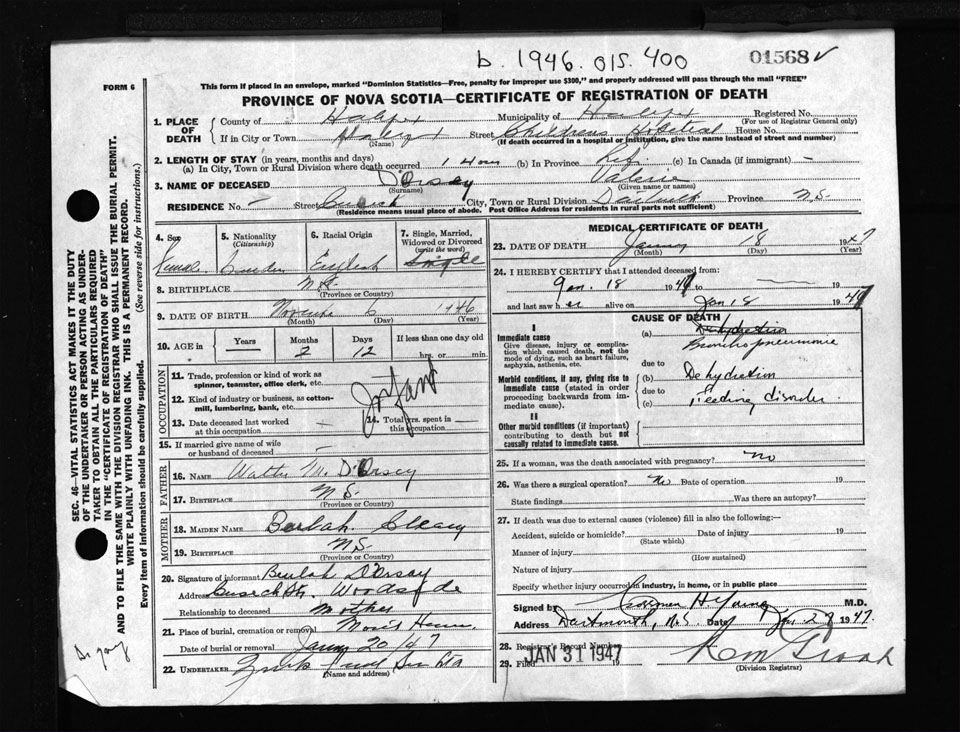 b. 1946. 015. 400
01568
FORM 6
This form if placed in an envelope, marked "Dominion Statistics—Free, penalty for improper use $300," and properly addressed will pass through the mail "FREE"
PROVINCE OF NOVA SCOTIA—CERTIFICATE OF REGISTRATION OF DEATH
1. PLACE OF DEATH County of Halifax Municipality of Halifax Registered No.
(For use of Registrar General only)
If in City or Town Halifax Street Childrens Hospital House No.
(Name) (If death occurred in a hospital or institution, give the name instead of street and number)
2. LENGTH OF STAY (in years, months and days)
(a) In City, Town or Rural Division where death occurred 1 Hour (b) In Province Life (c) In Canada (if immigrant) —
3. NAME OF DECEASED D'Orsay Valerie
(Surname) (Given name or names)
RESIDENCE No. — Street City, Town or Rural Division Province N.S.
(Residence means usual place of abode. Post Office Address for residents in rural parts not sufficient)
4. Sex 5. Nationality 6. Racial Origin 7. Single, Married, Widowed or Divorced
(Citizenship) (write the word)
Female English Single
8. BIRTHPLACE N.S.
(Province or Country)
9. DATE OF BIRTH November 6 1946
(Month) (Day) (Year)
10. AGE in Years Months Days If less than one day old
— 2 12 hrs. or min.
OCCUPATION
11. Trade, profession or kind of work as spinner, teamster, office clerk, etc.
12. Kind of industry or business, as cotton-mill, lumbering, bank, etc.
Infant
13. Date deceased last worked at this occupation — 14. Total yrs. spent in this occupation
15. If married give name of wife or husband of deceased
FATHER
16. NAME Walter M. D'Orsay
17. BIRTHPLACE N.S.
(Province or Country)
MOTHER
18. MAIDEN NAME Beulah Cleary
19. BIRTHPLACE N.S.
(Province or Country)
20. Signature of informant Beulah D'Orsay
Address Woodside
Relationship to deceased Mother
21. Place of burial, cremation or removal
Date of burial or removal 20/47
22. UNDERTAKER
(Name and address)
MEDICAL CERTIFICATE OF DEATH
23. DATE OF DEATH January 18 1947
(Month) (Day) (Year)
24. I HEREBY CERTIFY that I attended deceased from:
Jan. 18 1947 to 19
and last saw her alive on Jan 18 1947
CAUSE OF DEATH
I
Immediate cause
Give disease, injury or complication which caused death, not the mode of dying, such as heart failure, asphyxia, asthenia, etc.
(a) Dehydration
Bronchopneumonia
due to
Morbid conditions, if any, giving rise to immediate cause (stated in order proceeding backwards from immediate cause).
(b) Dehydration
due to
(c) Feeding disorder
II
Other morbid conditions (if important) contributing to death but not causally related to immediate cause.
25. If a woman, was the death associated with pregnancy? No
26. Was there a surgical operation? No Date of operation 19
State findings Was there an autopsy?
27. If death was due to external causes (violence) fill in also the following:—
Accident, suicide or homicide? Date of injury 19
(State which)
Manner of injury
(How sustained)
Nature of injury
Specify whether injury occurred in industry, in home, or in public place
Signed by M.D.
Address Dartmouth, N.S. Date Jan. 1947.
28. Registrar's Record Number
29. Filed JAN 31 1947
(Division Registrar)
SEC. 46—VITAL STATISTICS ACT MAKES IT THE DUTY
OF THE UNDERTAKER OR PERSON ACTING AS UNDERTAKER TO OBTAIN ALL THE PARTICULARS REQUIRED
IN THE "CERTIFICATE OF REGISTRATION OF DEATH"
AND TO FILE THE SAME WITH THE DIVISION REGISTRAR WHO SHALL ISSUE THE BURIAL PERMIT.
WRITE PLAINLY WITH UNFADING INK. THIS IS A PERMANENT RECORD.
Every item of information should be carefully supplied. (See reverse side for instructions.)